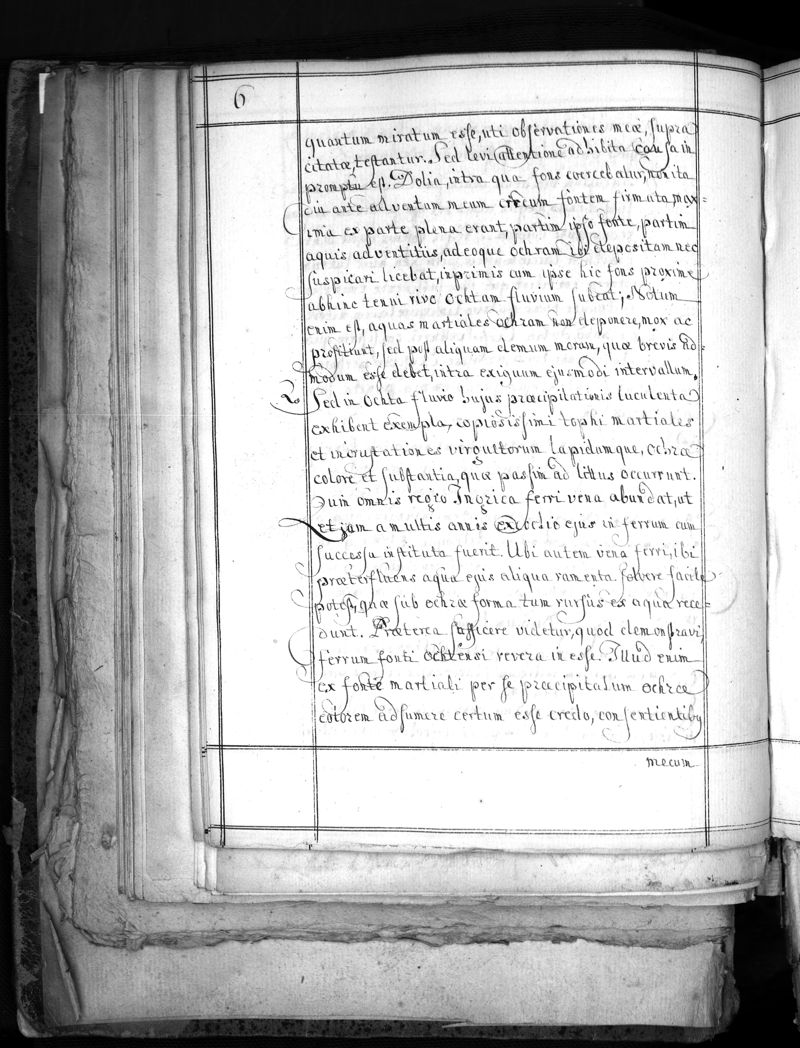 6
quantum miratum esse, uti observationes meæ, supra
citatæ, testantur. Sed levi attentione adhibita causa in
promptu est. Dolia, intra quæ fons coercebatur, non ita
diu ante adventam meum circum fontem firmata, max=
ima ex parte plena erant, partim ipso fonte, partim
aquis adventitiis, adeoque ochram ibi depositam nec
suspicari licebat, inprimis cum ipse hic fons proxime
abhinc tenui rivo Ochtam fluvium subeat; Notum
enim est, aquas martiales ochram non deponere, mox ac
prosiliunt, sed post aliquam demum moram, quæ brevis ad=
modum esse debet, intra exiguum ejusmodi intervallum.
Sed in Ochta fluvio hujus præcipitationis luculenta
exhibent exempla, copiosissimi tophi martiales
et incrustationes virgultorum lapidumque, ochræ
colore et substantia, quæ passim ad littus occurrunt.
Quin omnis regio Ingrica ferri vena abundat, ut
etjam a multis annis excoctio ejus in ferrum cum
successu instituta fuerit. Ubi autem vena ferri, ibi
præterfluens aqua ejus aliqua ramenta solvere facile
potest, quæ sub ochræ forma tum rursus ex aqua rece=
dunt. Præterea sufficere videtur, quod demonstravi,
ferrum fonti Ochtensi revera in esse. Illud enim
ex fonte martiali per se præcipitatum ochræ
colorem adsumere certum esse credo, consentientibus
mecum